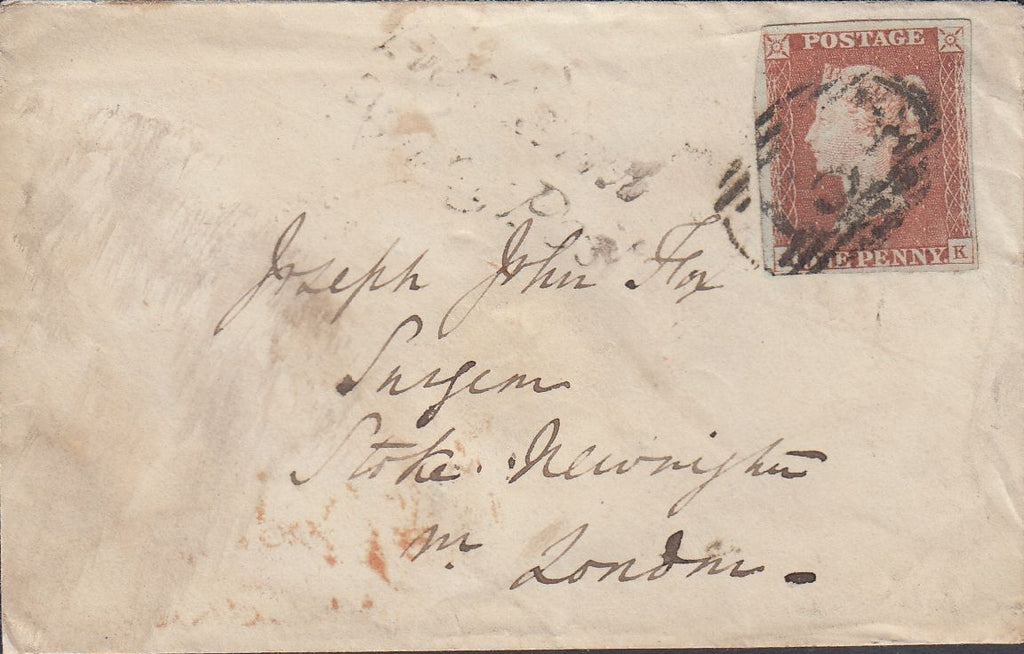 POSTAGE
ONE PENNY K
Joseph John Fox
Surgeon
Stoke Newington
nr. London